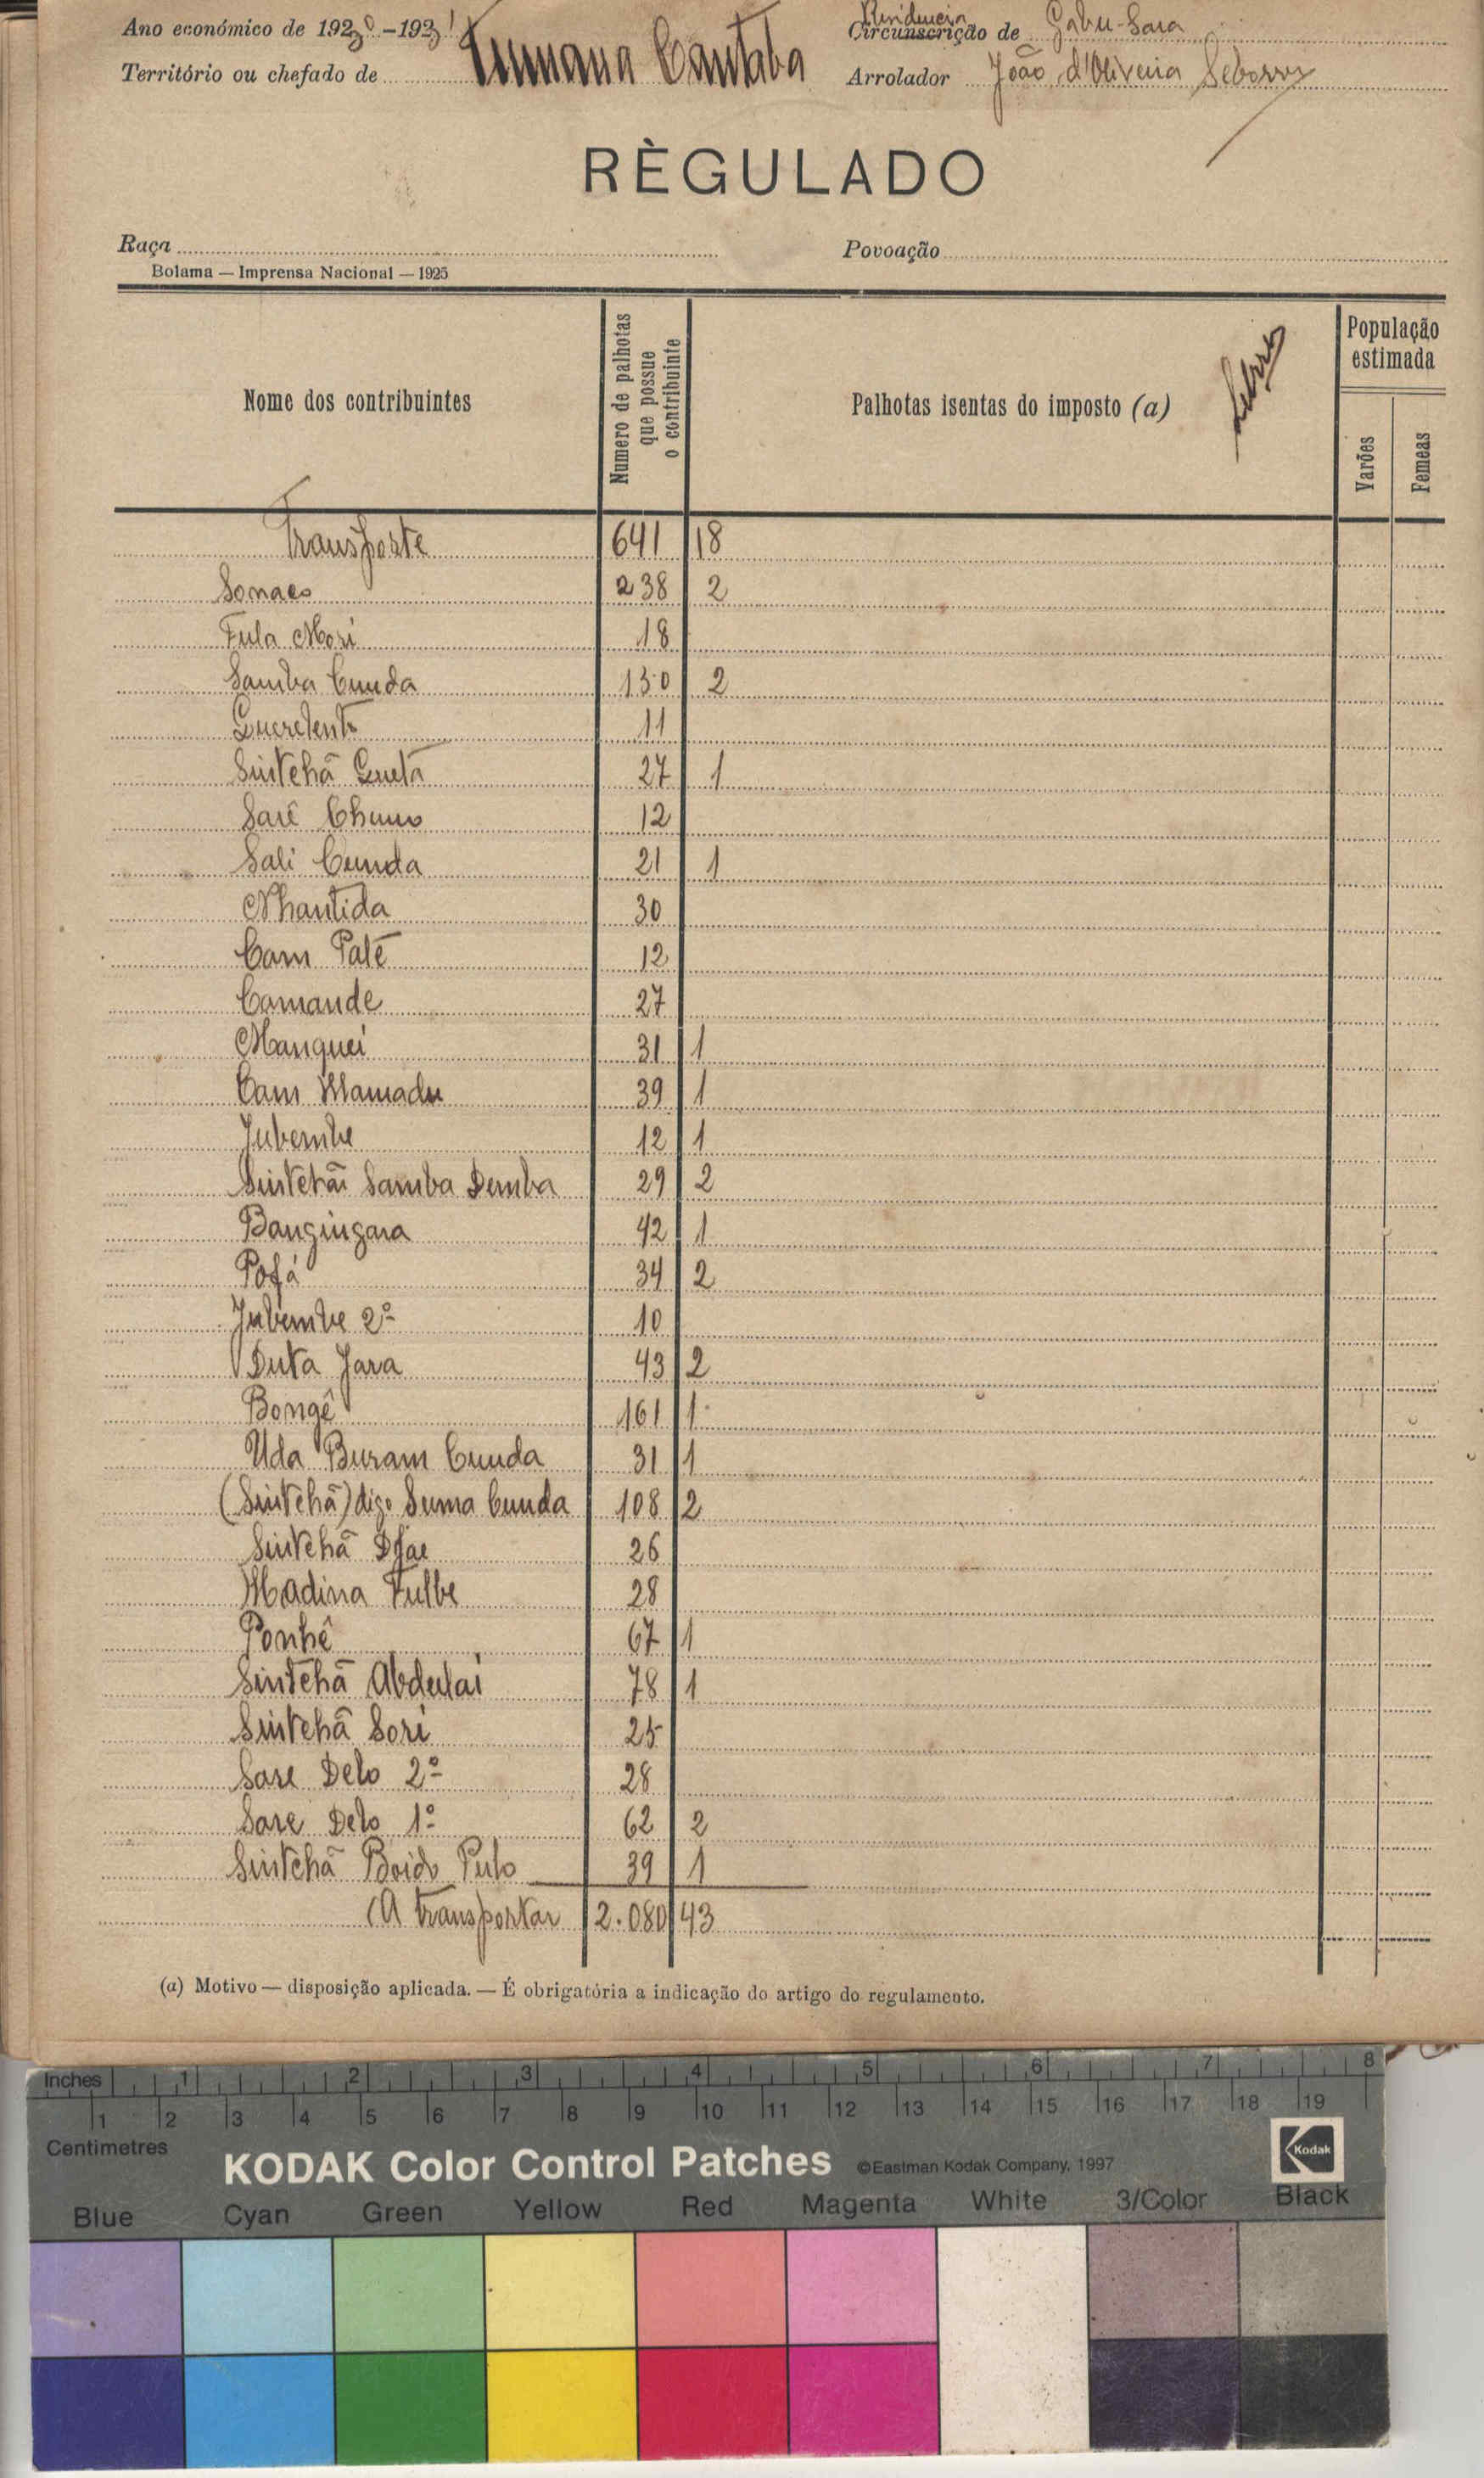 Ano económico de 1930-1931
Residencia
Circunscrição de Gabu-Sara
Território ou chefado de Tumana Cantaba
Arrolador João d'Oliveira
RÈGULADO
Raça
Povoação
Bolama — Imprensa Nacional — 1925
Nome dos contribuintes
Numero de palhotas que possue o contribuinte
Palhotas isentas do imposto (a)
População estimada
Varões
Femeas
Transporte 641 18
Sonaco 238 2
Fula Mori 18
Samba Cunda 130 2
11
Sintchã Guetá 27 1
Sarê Chuno 12
Sali Cunda 21 1
Nhantida 30
Cam Paté 12
Camande 27
Manquei 31 1
Cam Mamadu 39 1
Jubembe 12 1
Sintchã Samba Demba 29 2
Bangingara 42 1
Pofá 34 2
Jubembe 2º 10
Duta Jara 43 2
Bongê 161 1
Uda Buram Cunda 31 1
(Sintchã) digo Suma Cunda 108 2
Sintchã Djae 26
Madina Fulbe 28
Ponhê 67 1
Sintchã Abdulai 78 1
Sintchã Sori 25
Sare Delo 2º 28
Sare Delo 1º 62 2
Sintchã Boido Pulo 39 1
A transportar 2.080 43
(a) Motivo — disposição aplicada. — É obrigatória a indicação do artigo do regulamento.
Inches 1 2 3 4 5 6 7 8
1 2 3 4 5 6 7 8 9 10 11 12 13 14 15 16 17 18 19
Centimetres
KODAK Color Control Patches ©Eastman Kodak Company, 1997 Kodak
Blue Cyan Green Yellow Red Magenta White 3/Color Black